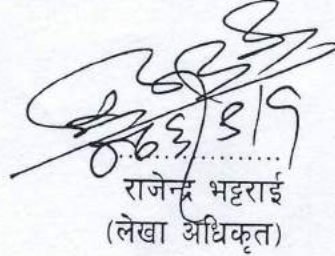 ....................
राजेन्द्र भट्टराई
(लेखा अधिकृत)